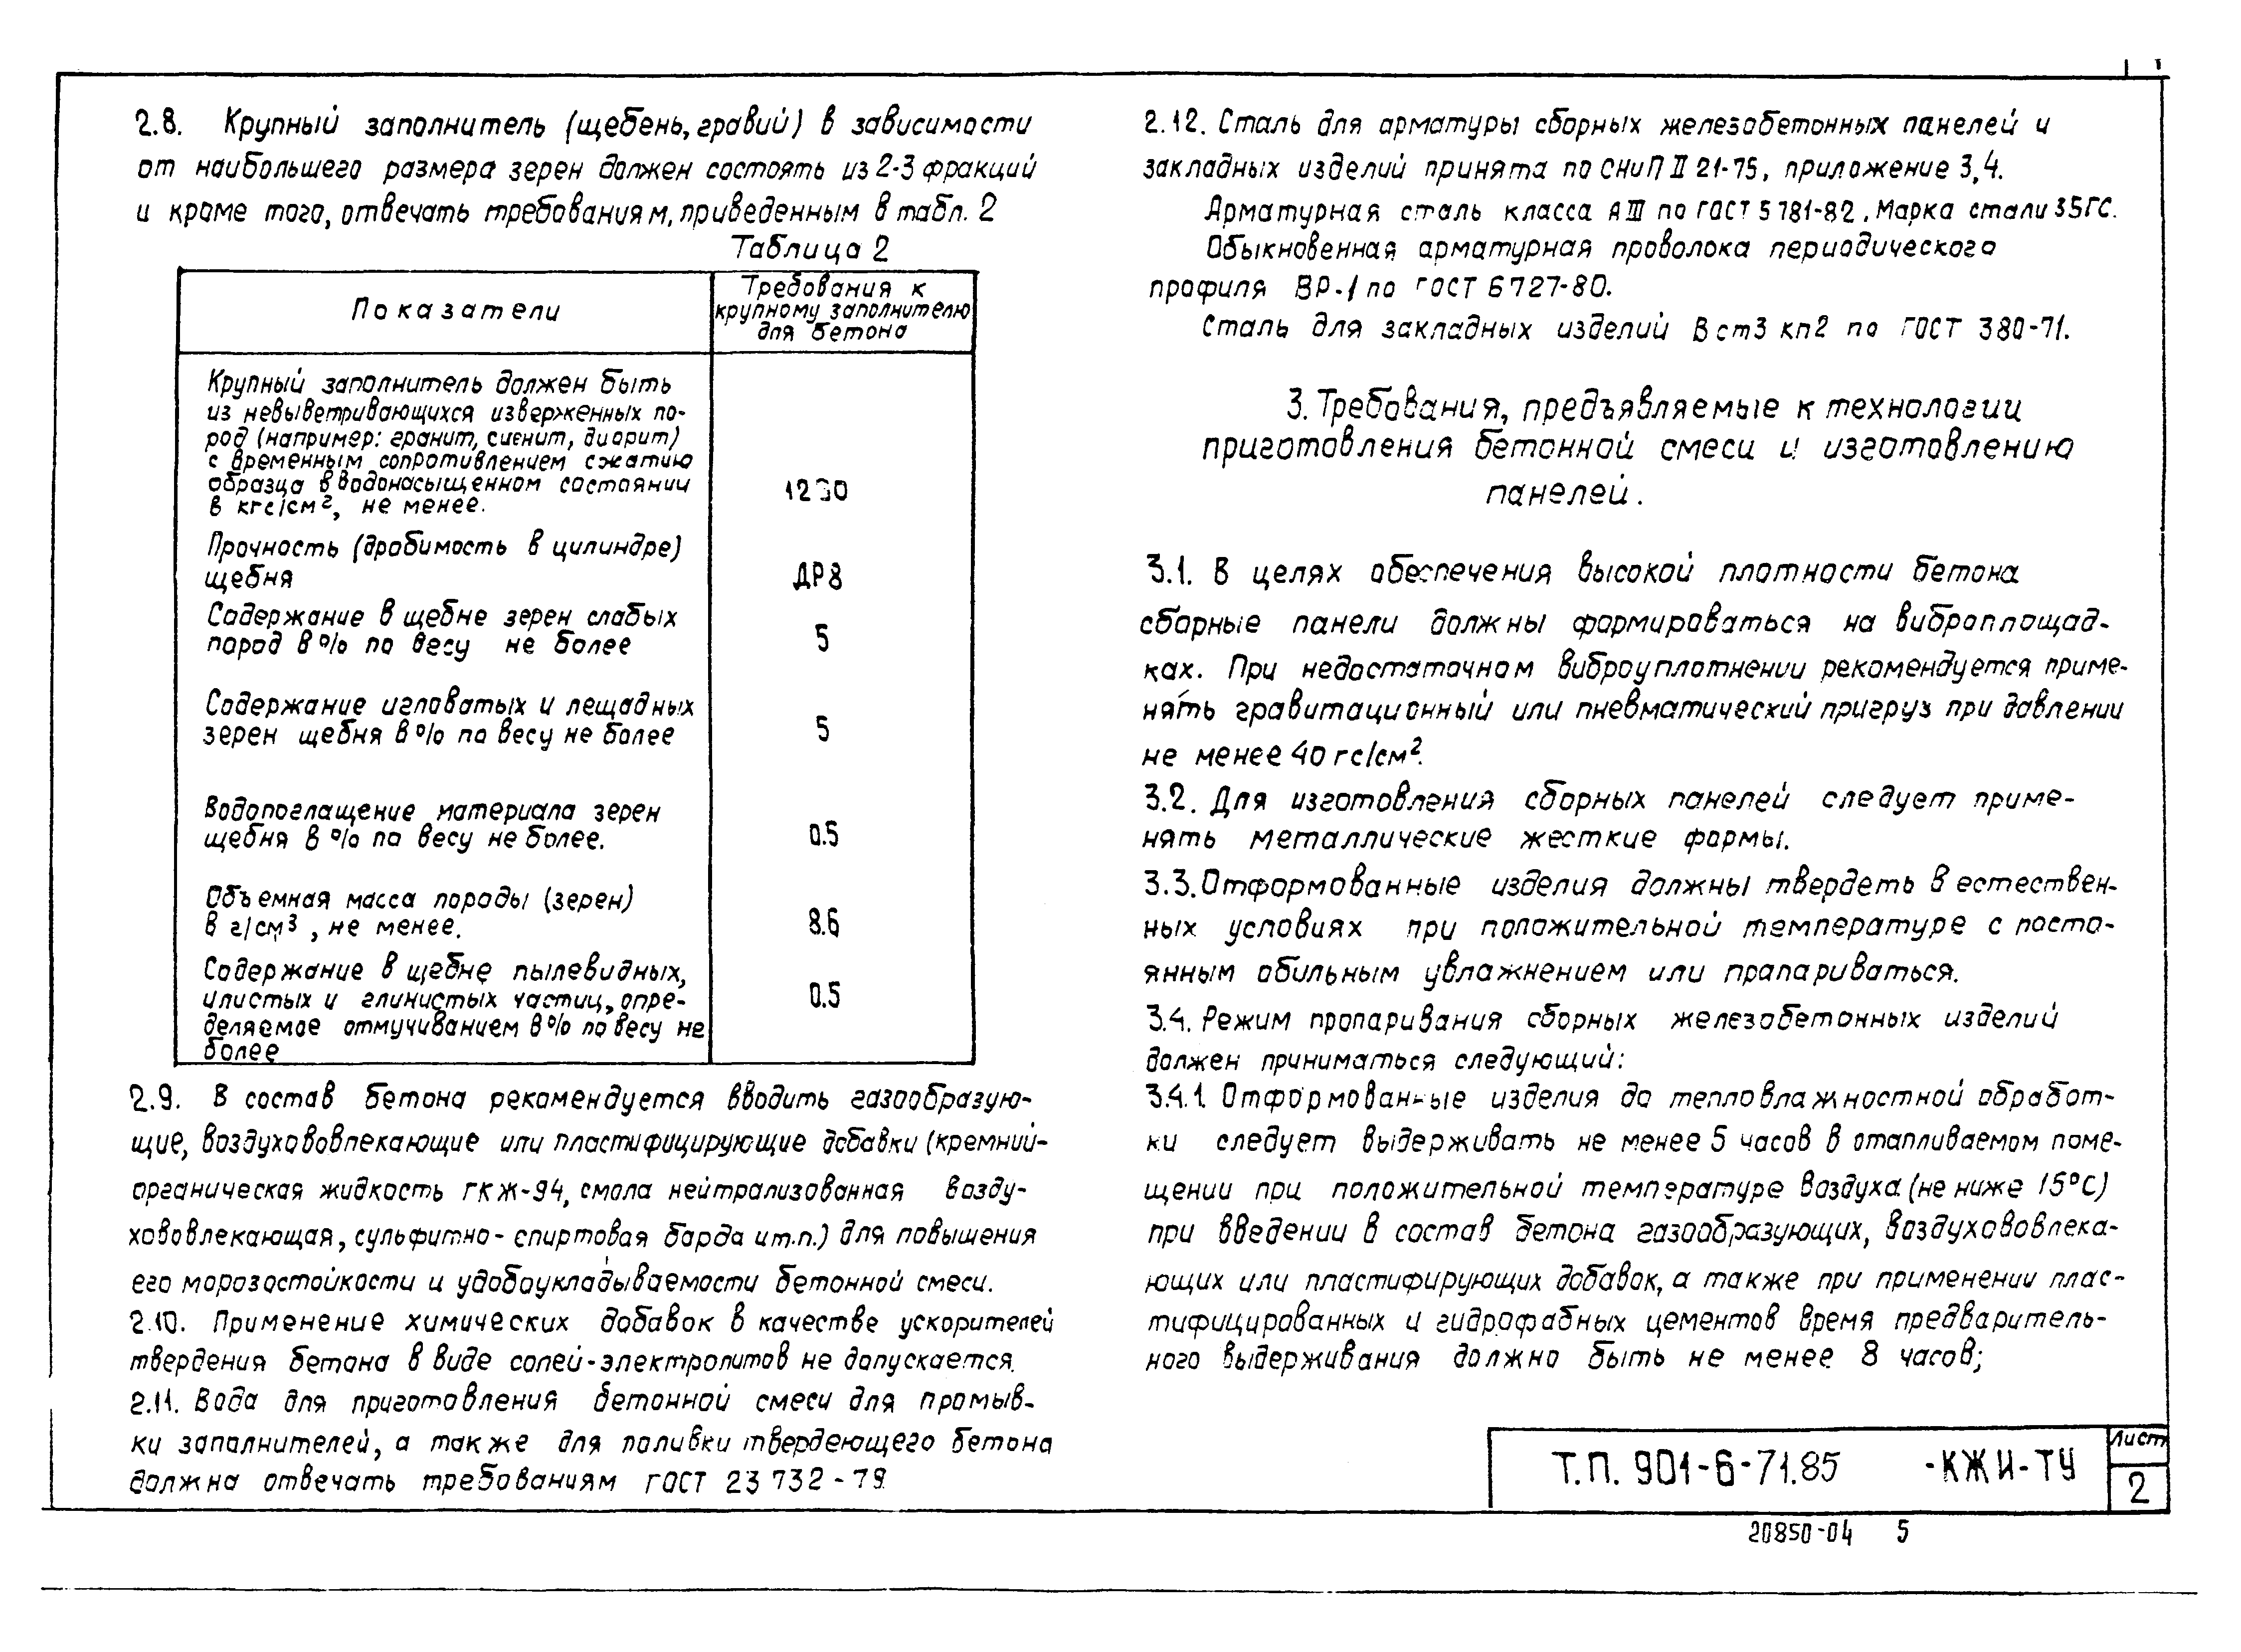 2.8. Крупный заполнитель (щебень, гравий) в зависимости
от наибольшего размера зерен должен состоять из 2-3 фракций
и кроме того, отвечать требованиям, приведенным в табл. 2
Таблица 2
Показатели
Требования к
крупному заполнителю
для бетона
Крупный заполнитель должен быть
из невыветривающихся изверженных по-
род (например: гранит, сиенит, диорит)
с временным сопротивлением сжатию
образца в водонасыщенном состоянии
в кгс/см², не менее.
Прочность (дробимость в цилиндре)
щебня
ДР8
Содержание в щебне зерен слабых
пород в % по весу не более
5
Содержание игловатых и лещадных
зерен щебня в % по весу не более
5
Водопоглащение материала зерен
щебня в % по весу не более.
0.5
Объемная масса породы (зерен)
в г/см³, не менее.
8.6
Содержание в щебне пылевидных,
илистых и глинистых частиц, опре-
деляемое отмучиванием в % по весу не
более
0.5
2.9. В состав бетона рекомендуется вводить газообразую-
щие, воздухововлекающие или пластифицирующие добавки (кремний-
органическая жидкость ГКЖ-94, смола нейтрализованная возду-
хововлекающая, сульфитно-спиртовая барда и т.п.) для повышения
его морозостойкости и удобоукладываемости бетонной смеси.
2.10. Применение химических добавок в качестве ускорителей
твердения бетона в виде солей-электролитов не допускается.
2.11. Вода для приготовления бетонной смеси для промыв-
ки заполнителей, а также для поливки твердеющего бетона
должна отвечать требованиям ГОСТ 23732-79
2.12. Сталь для арматуры сборных железобетонных панелей и
закладных изделий принята по СНиП II 21-75, приложение 3,4.
Арматурная сталь класса АIII по ГОСТ 5781-82. Марка стали 35ГС.
Обыкновенная арматурная проволока периодического
профиля ВР-I по ГОСТ 6727-80.
Сталь для закладных изделий Вст3 кп2 по ГОСТ 380-71.
3. Требования, предъявляемые к технологии
приготовления бетонной смеси и изготовлению
панелей.
3.1. В целях обеспечения высокой плотности бетона
сборные панели должны формироваться на виброплощад-
ках. При недостаточном виброуплотнении рекомендуется приме-
нять гравитационный или пневматический пригруз при давлении
не менее 40 гс/см².
3.2. Для изготовления сборных панелей следует приме-
нять металлические жесткие формы.
3.3. Отформованные изделия должны твердеть в естествен-
ных условиях при положительной температуре с посто-
янным обильным увлажнением или прапариваться.
3.4. Режим пропаривания сборных железобетонных изделий
должен приниматься следующий:
3.4.1. Отформованные изделия до тепловлажностной обработ-
ки следует выдерживать не менее 5 часов в отапливаемом поме-
щении при положительной температуре воздуха (не ниже 15°С)
при введении в состав бетона газообразующих, воздухововлека-
ющих или пластифирующих добавок, а также при применении плас-
тифицированных и гидрофабных цементов время предваритель-
ного выдерживания должно быть не менее 8 часов;
Т.П. 901-6-71.85 -КЖИ-ТУ
Лист
2
20850-04 5